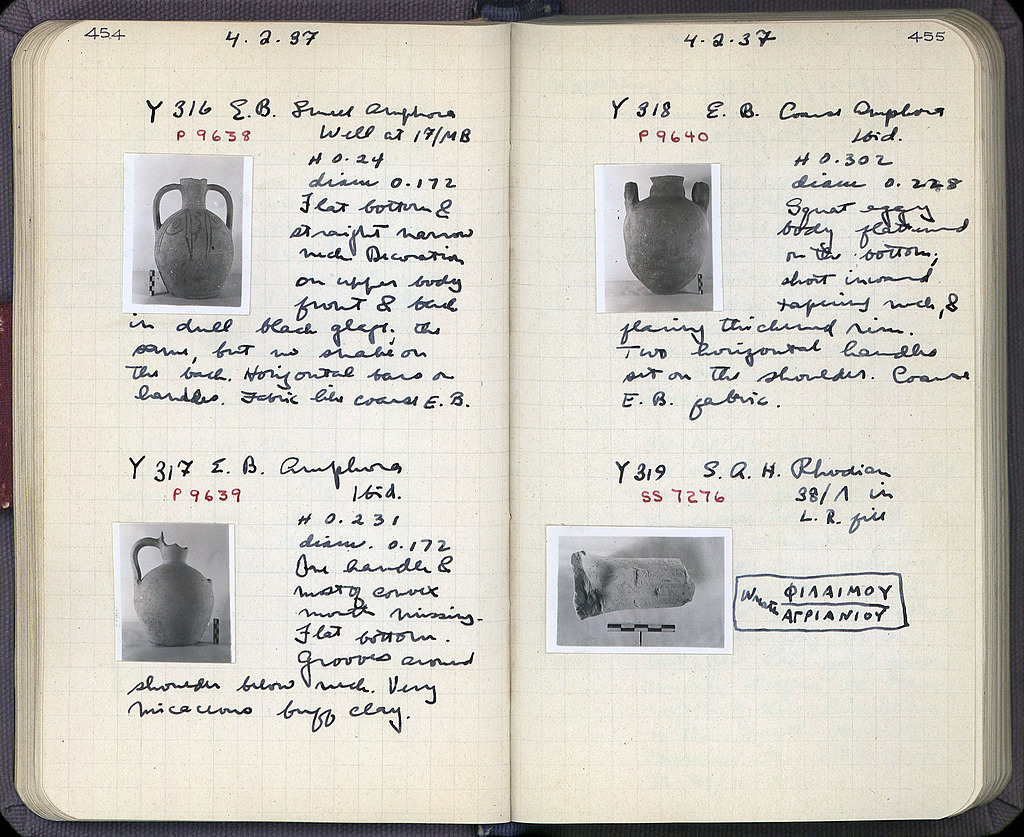 454
4.2.37
Y 316 E.B. Small Amphora
P 9638 Well at 17/MB
H 0.24
diam 0.172
Flat bottom &
straight narrow
neck Decoration
on upper body
front & back
in dull black glaze, the
same, but no snake on
the back. Horizontal bars on
handles. Fabric like coarse E.B.
Y 317 E. B. Amphora
P 9639 Ibid.
H 0.231
diam. 0.172
One handle &
most of convex
mouth missing.
Flat bottom.
Grooves around
shoulder below neck. Very
micaceous buff clay.
4.2.37
455
Y 318 E. B. Coarse Amphora
P 9640 Ibid.
H 0.302
diam 0.228
Squat eggy
body flattened
on the bottom;
short inward
tapering neck, &
flaring thickened rim.
Two horizontal handles
set on the shoulder. Coarse
E. B. fabric.
Y 319 S. A. H. Rhodian
SS 7276 38/Λ in
L. R. fill
Wreath ΦΙΛΑΙΜΟΥ
ΑΓΡΙΑΝΙΟΥ